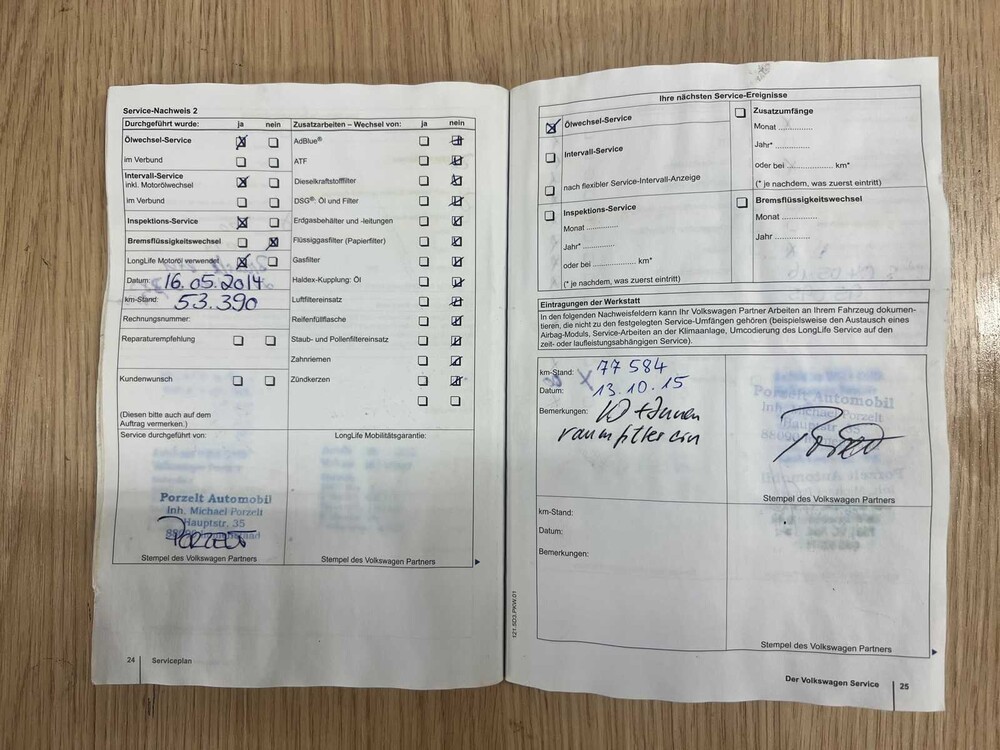 Service-Nachweis 2
Durchgeführt wurde: ja nein
Ölwechsel-Service
im Verbund
Intervall-Service
inkl. Motorölwechsel
im Verbund
Inspektions-Service
Bremsflüssigkeitswechsel
LongLife Motoröl verwendet
Datum: 16.05.2014
km-Stand: 53.390
Rechnungsnummer:
Reparaturempfehlung
Kundenwunsch
(Diesen bitte auch auf dem
Auftrag vermerken.)
Zusatzarbeiten – Wechsel von: ja nein
AdBlue®
ATF
Dieselkraftstofffilter
DSG®: Öl und Filter
Erdgasbehälter und -leitungen
Flüssiggasfilter (Papierfilter)
Gasfilter
Haldex-Kupplung: Öl
Luftfiltereinsatz
Reifenfüllflasche
Staub- und Pollenfiltereinsatz
Zahnriemen
Zündkerzen
Service durchgeführt von:
Porzelt Automobil
Inh. Michael Porzelt
Hauptstr. 35
Stempel des Volkswagen Partners
LongLife Mobilitätsgarantie:
Stempel des Volkswagen Partners
24 Serviceplan
Ihre nächsten Service-Ereignisse
Ölwechsel-Service
Intervall-Service
nach flexibler Service-Intervall-Anzeige
Inspektions-Service
Monat ..............
Jahr* ..............
oder bei .............. km*
(* je nachdem, was zuerst eintritt)
Zusatzumfänge
Monat ..............
Jahr* ..............
oder bei .............. km*
(* je nachdem, was zuerst eintritt)
Bremsflüssigkeitswechsel
Monat ..............
Jahr ..............
Eintragungen der Werkstatt
In den folgenden Nachweisfeldern kann Ihr Volkswagen Partner Arbeiten an Ihrem Fahrzeug dokumen-
tieren, die nicht zu den festgelegten Service-Umfängen gehören (beispielsweise den Austausch eines
Airbag-Moduls, Service-Arbeiten an der Klimaanlage, Umcodierung des LongLife Service auf den
zeit- oder laufleistungsabhängigen Service).
km-Stand: 77 584
Datum: 13.10.15
Bemerkungen:
Porzelt Automobil
Inh. Michael Porzelt
Hauptstr. 35
Stempel des Volkswagen Partners
km-Stand:
Datum:
Bemerkungen:
Stempel des Volkswagen Partners
121.5D3.PKW.01
Der Volkswagen Service 25